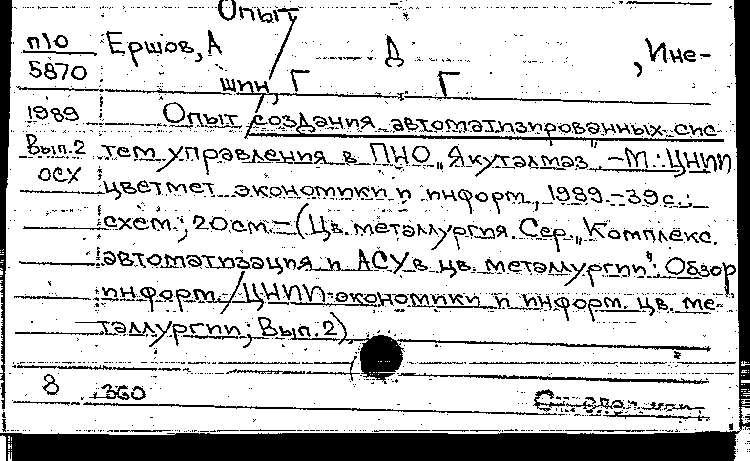 Опыт
п10 Ершов, А Д , Ине-
5870 шин, Г Г
1989 Опыт создания автоматизированных сис
Вып.2 тем управления в ПНО „Якуталмаз". – М.: ЦНИИ
ОСХ цветмет экономики и информ., 1989. – 39 с.:
схем.; 20 см. – (Цв. металлургия. Сер. „Комплекс.
автоматизация и АСУ в цв. металлургии": Обзор
информ. / ЦНИИ экономики и информ. цв. ме-
таллургии; Вып. 2)
8 360